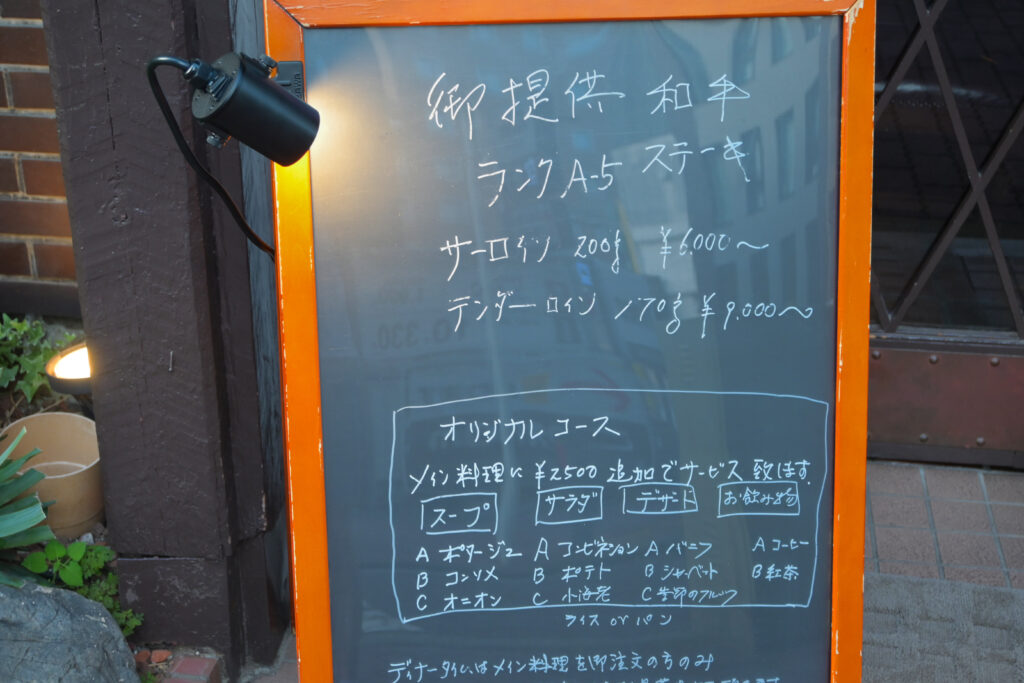 御提供 和牛
ランク A-5 ステーキ
サーロイン 200g ¥6.000〜
テンダーロイン 170g ¥9.000〜
オリジナル コース
メイン料理に ¥2500 追加でサービス致します.
スープ サラダ デザート お飲み物
A ポタージュ A コンビネーション A バニラ A コーヒー
B コンソメ B ポテト B シャーベット B 紅茶
C オニオン C 小海老 C 季節のフルーツ
ライス or パン
ディナータイムはメイン料理を御注文の方のみ